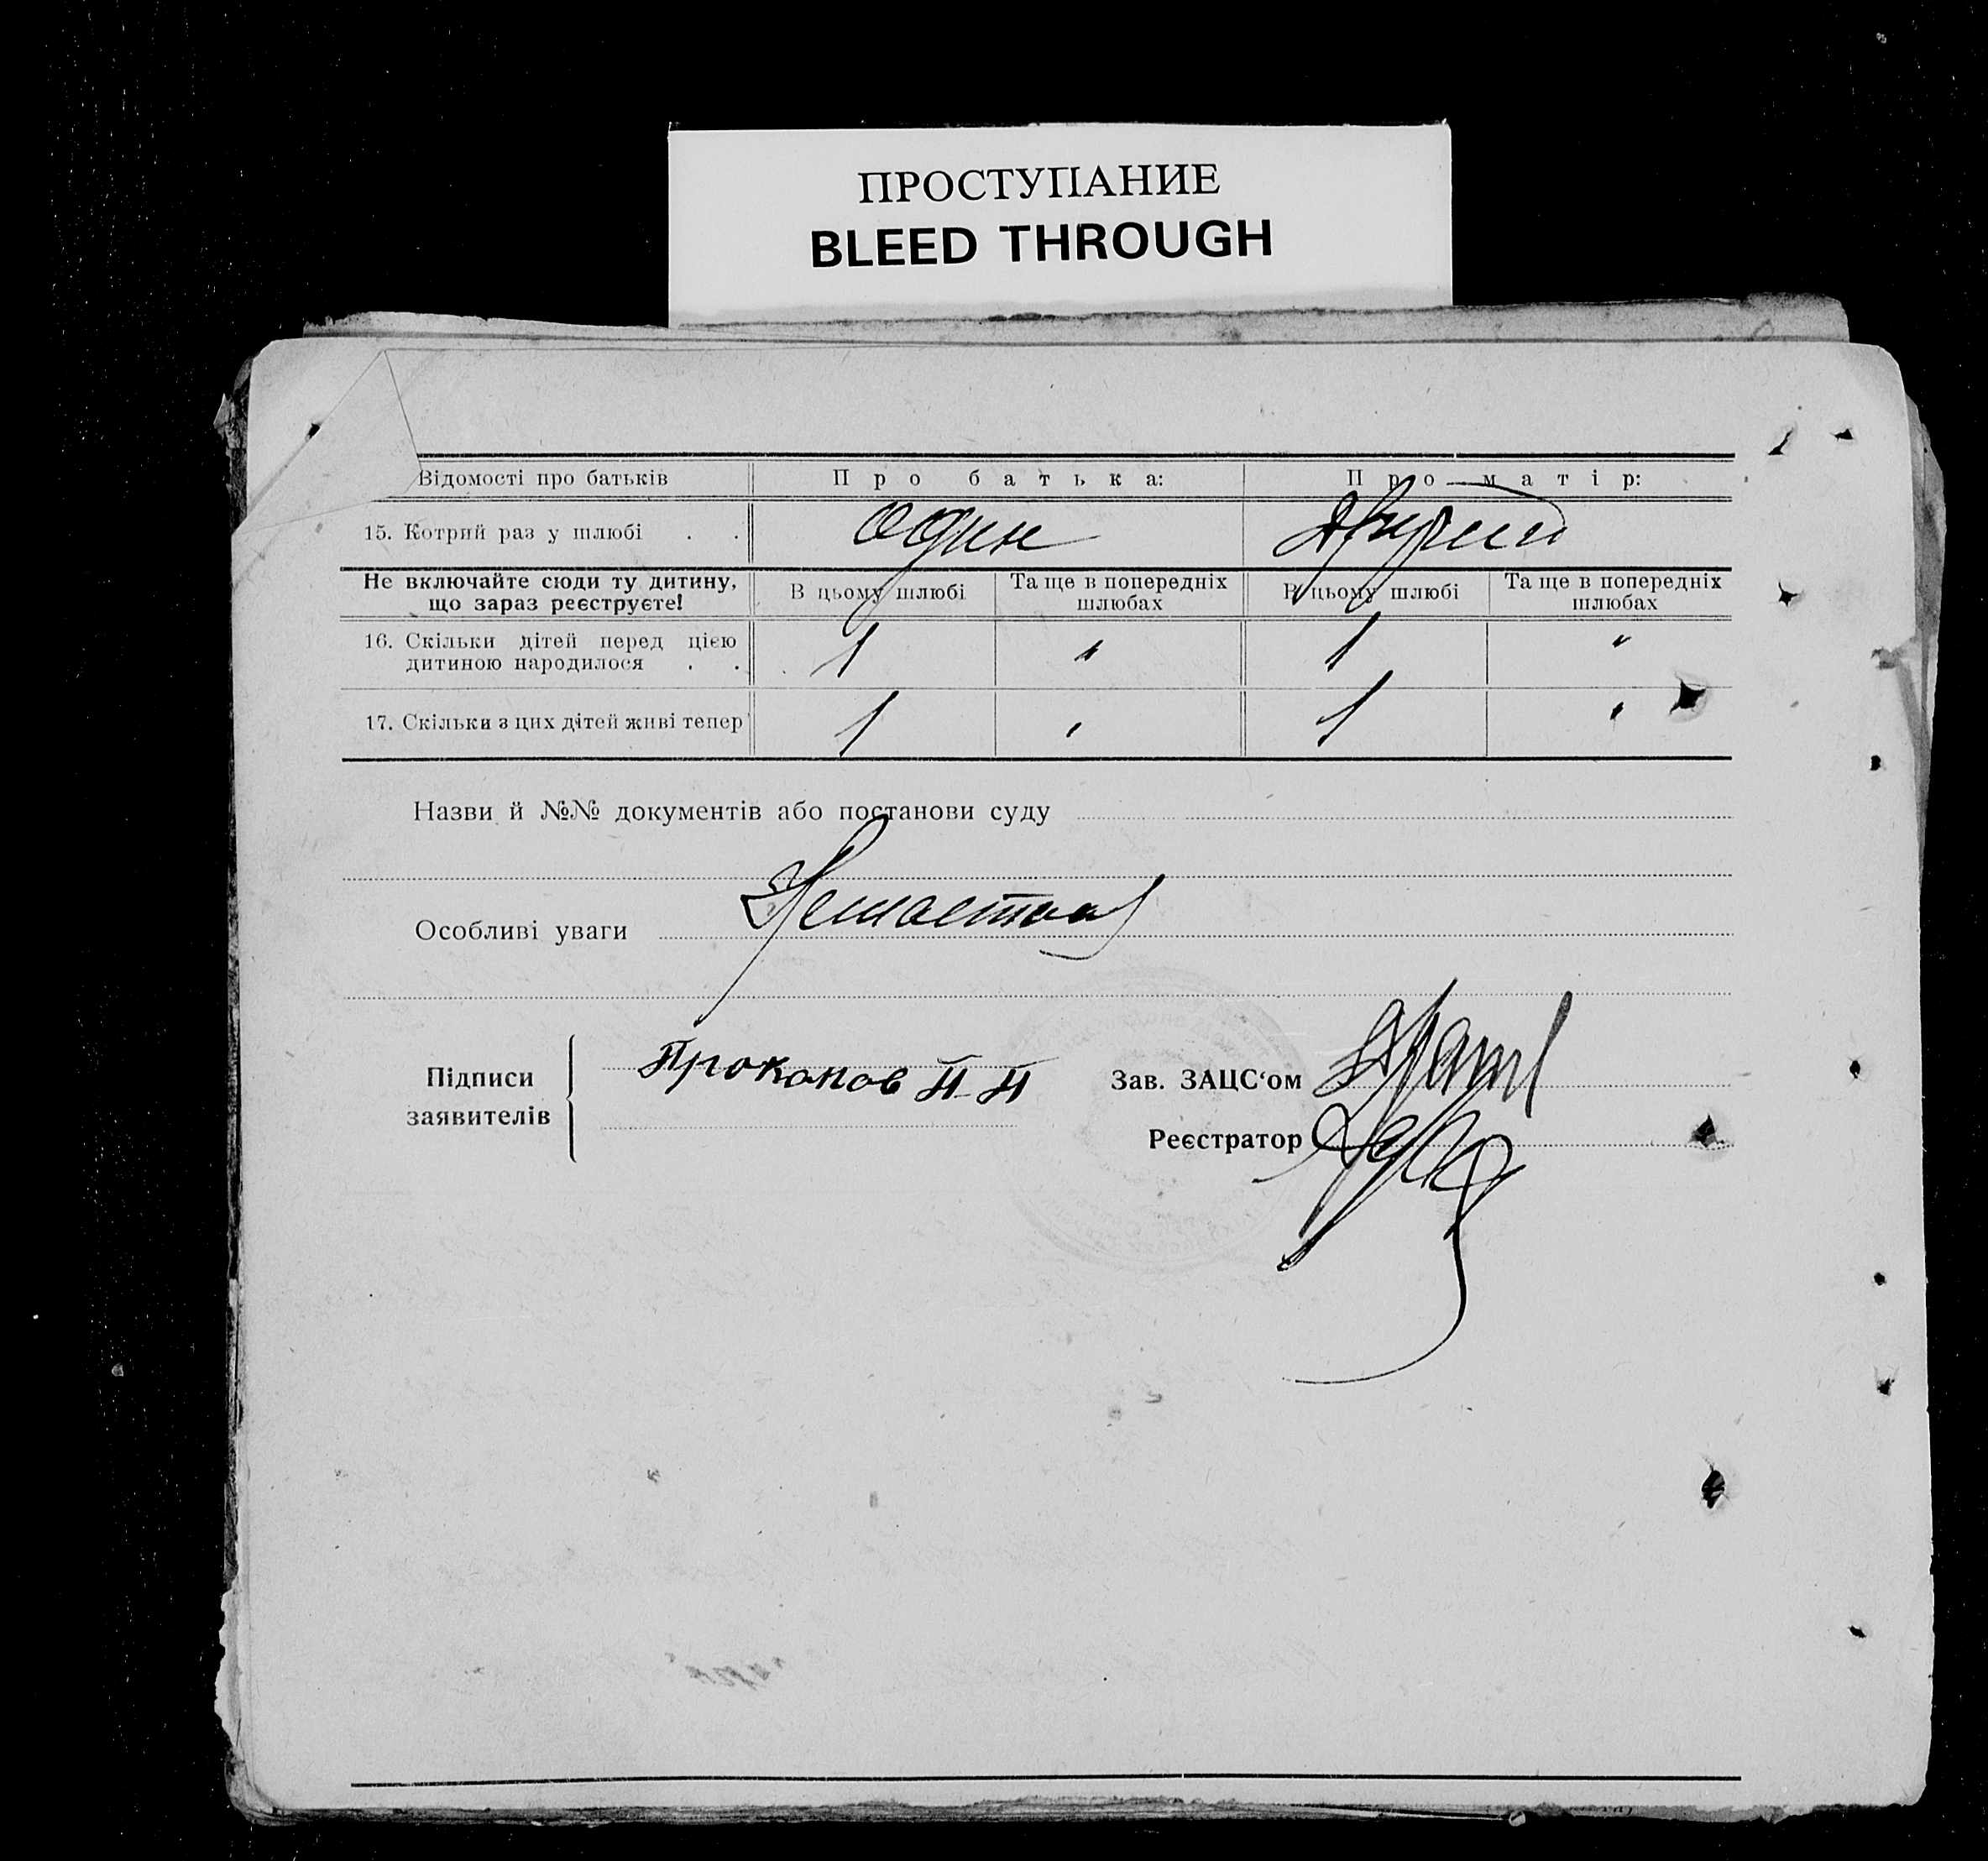 ПРОСТУПАНИЕ
BLEED THROUGH
Відомості про батьків Про батька: Про матір:
15. Котрий раз у шлюбі . . один другий
Не включайте сюди ту дитину, що зараз реєструєте! В цьому шлюбі Та ще в попередніх шлюбах В цьому шлюбі Та ще в попередніх шлюбах
16. Скільки дітей перед цією дитиною народилося . . 1 " 1 "
17. Скільки з цих дітей живі тепер 1 " 1 "
Назви й №№ документів або постанови суду
Особливі уваги
Підписи заявителів Прокопов
Зав. ЗАЦС‘ом
Реєстратор